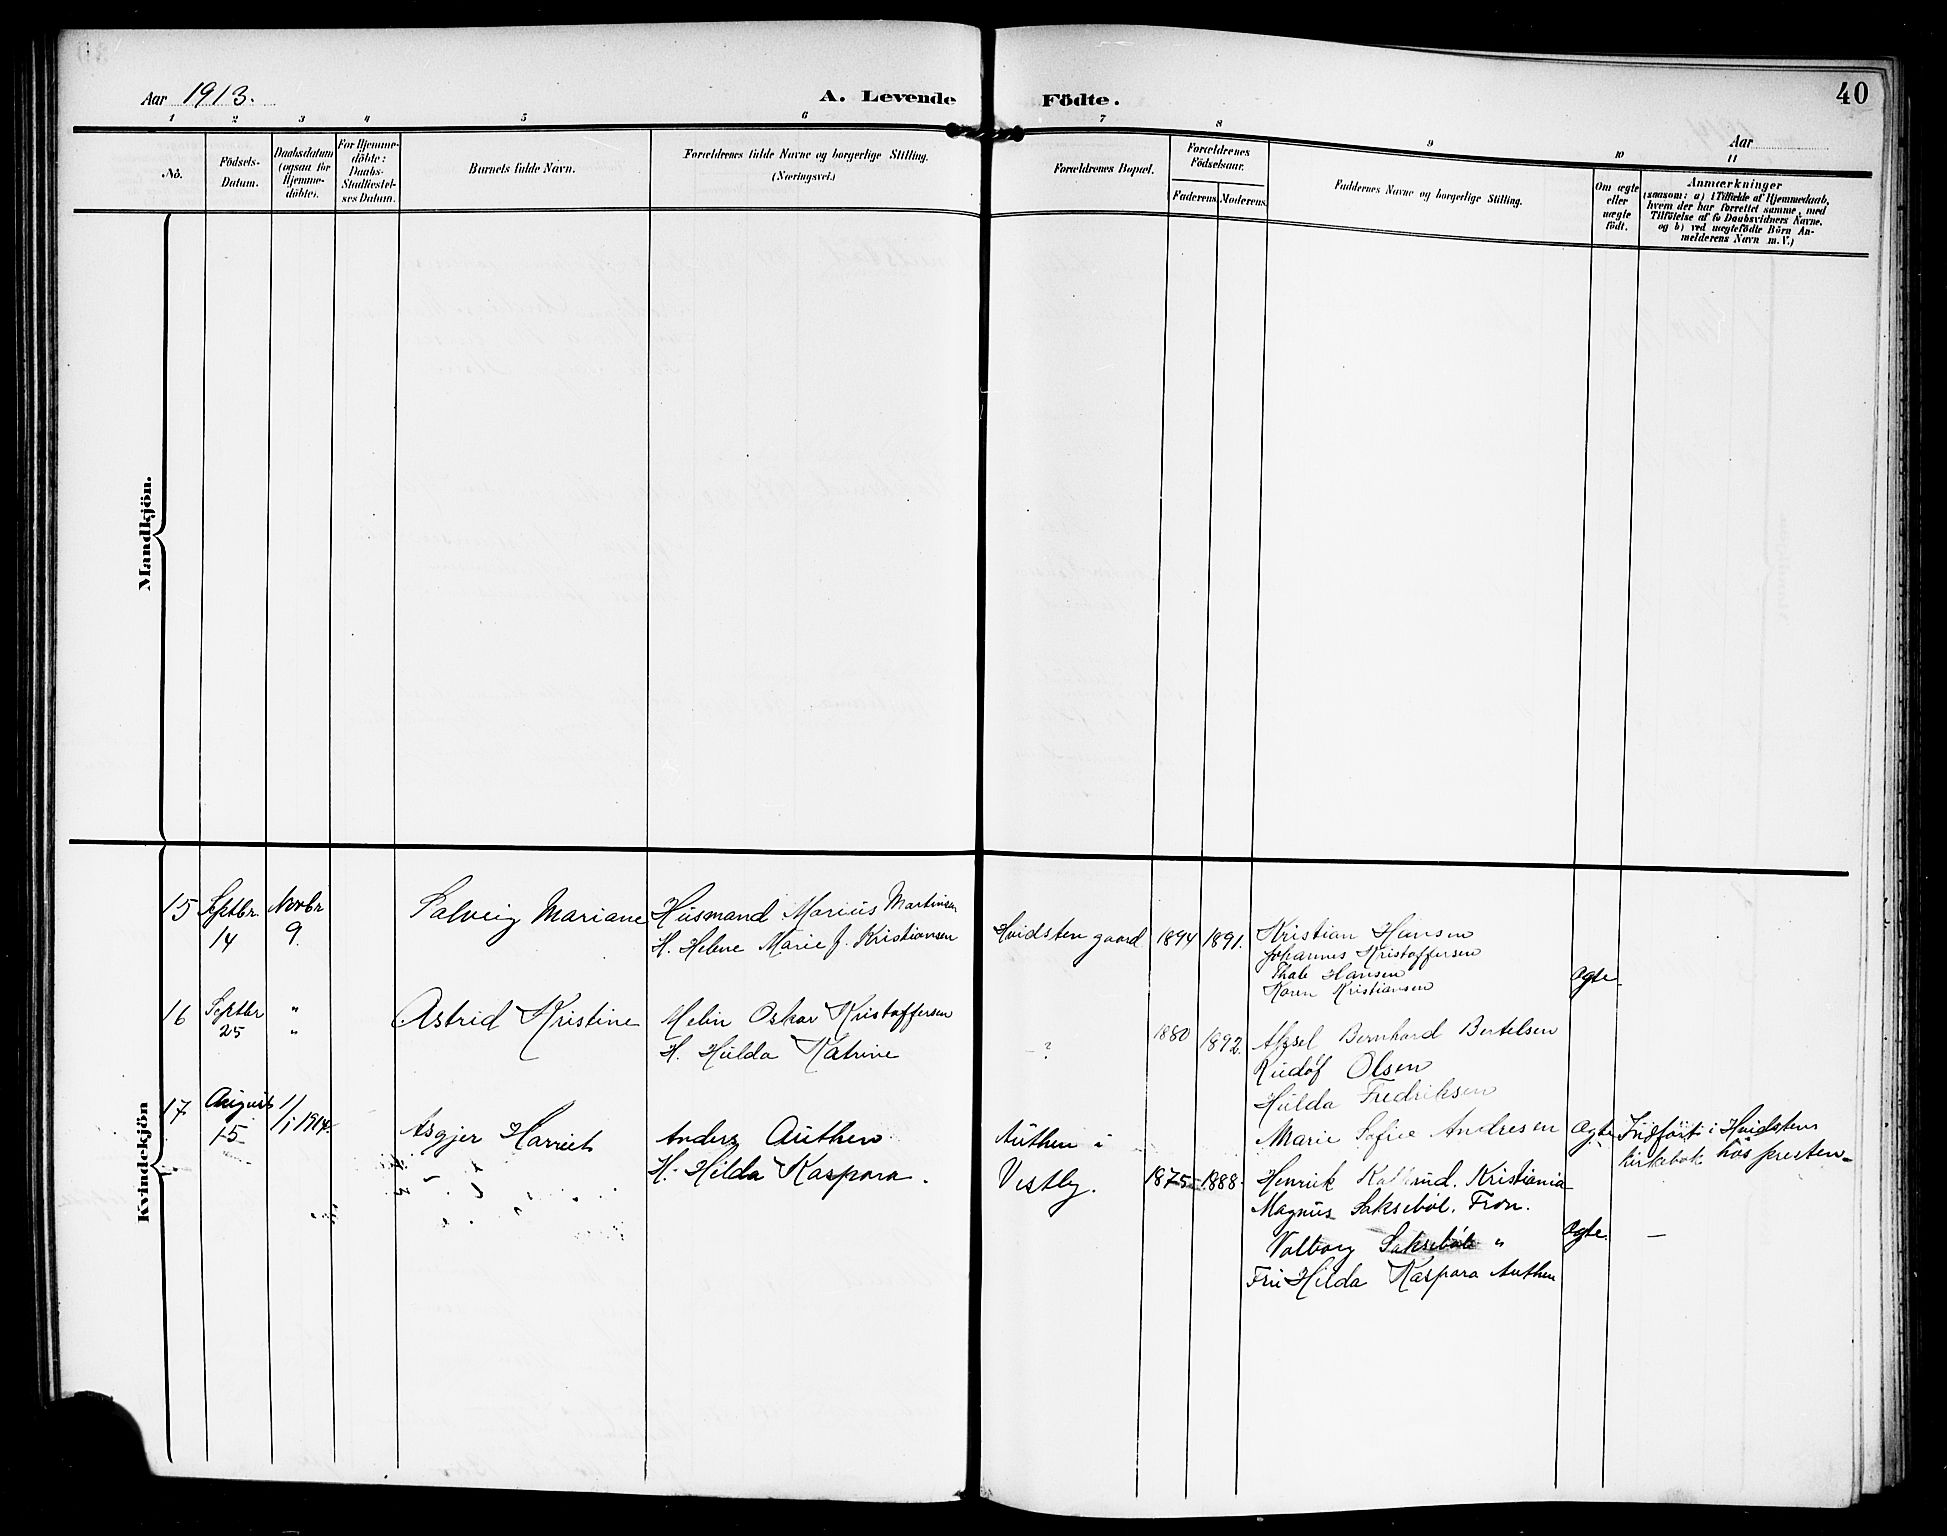 40
Aar 1913.
A. Levende Födte.
Aar
1 2 3 4 5 6 7 8 9 10 11
No.
Födsels-
Datum.
Daabsdatum
(ogsaa for
Hjemme-
döbte).
For Hjemme-
döbte:
Daabs-
Stadfæstel-
ses Datum.
Barnets fulde Navn.
Forældrenes fulde Navne og borgerlige Stilling.
(Næringsvei.)
Forældrenes Bopæl.
Forældrenes
Födselsaar.
Faderens. Moderens.
Faddernes Navne og borgerlige Stilling.
Om ægte
eller
uægte
födt.
Anmærkninger
(saasom: a) i Tilfælde af Hjemmedaab,
hvem der har forrettet samme, med
Tilföielse af to Daabsvidners Navne,
og b) ved uægtefödte Börn An-
melderens Navn m.V.)
Mandkjön.
Kvindekjön
15 Septbr. Novbr Solveig Mariane Husmand Marius Martinsen
14 9. H. Helene Marie f. Kristiansen Hvidsten gaard 1894 1891. Kristian Hansen
Johannes Kristoffersen
Thale Hansen
Karen Kristiansen Ægte
16 Septbr " Astrid Kristine Melin Oskar Kristoffersen
25 " H. Hulda Katrine - ? 1880 1892. Aksel Bernhard Bertelsen
Rudolf Olsen
Hulda Fredriksen
Marie Sofie Andresen Ægte Indfört i Hvidsten
kirkebok hos presten
17 August 1/1 1914. Asgjer Harriet Anders Authen Authen i
15 H. Hilda Kaspara. Vestby. 1875 1888. Henrik Kristiania
Magnus Saksebøl. Fron.
Valborg Saksebøl " Ægte. —
Fru Hilda Kaspara Authen